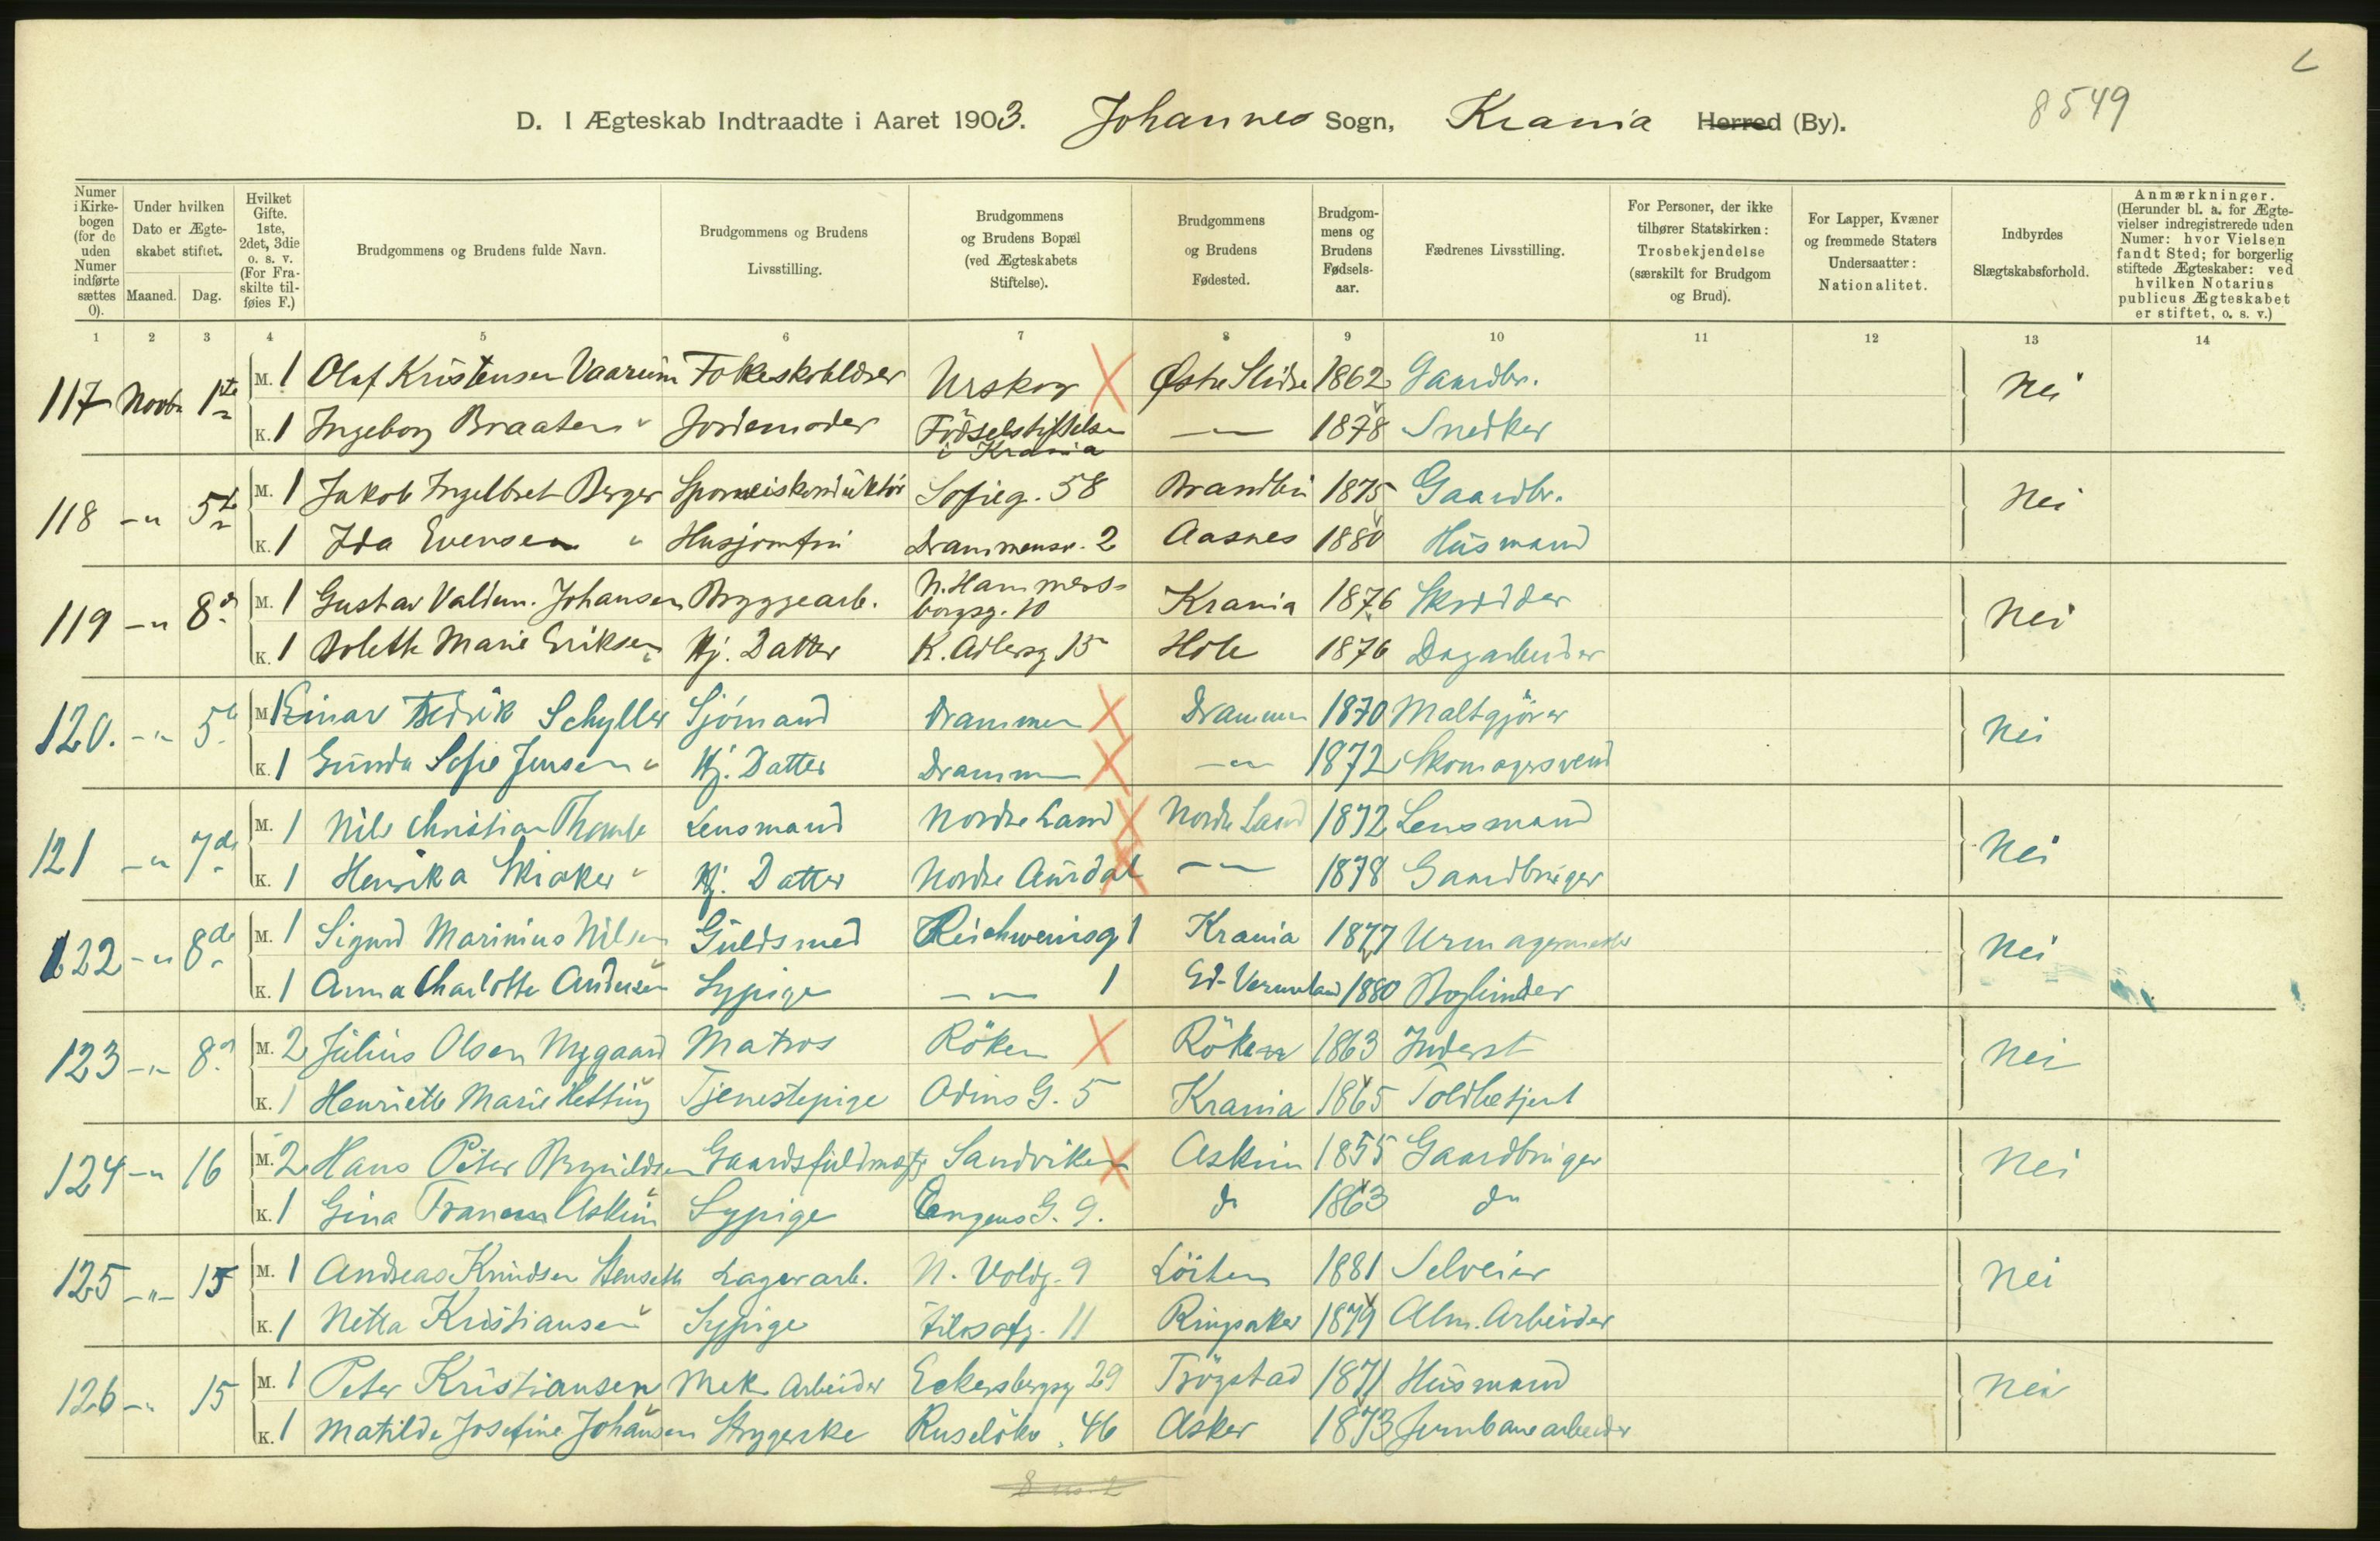 8549
D. I Ægteskab Indtraadte i Aaret 1903. Johannes Sogn, Krania Herred (By).
Numer i Kirkebogen (for de uden Numer indførte sættes 0). | Under hvilken Dato er Ægteskabet stiftet. Maaned. Dag. | Hvilket Gifte. 1ste, 2det, 3die o. s. v. (For Fraskilte tilføies F.) | Brudgommens og Brudens fulde Navn. | Brudgommens og Brudens Livsstilling. | Brudgommens og Brudens Bopæl (ved Ægteskabets Stiftelse). | Brudgommens og Brudens Fødested. | Brudgommens og Brudens Fødselsaar. | Fædrenes Livsstilling. | For Personer, der ikke tilhører Statskirken: Trosbekjendelse (særskilt for Brudgom og Brud). | For Lapper, Kvæner og fremmede Staters Undersaatter: Nationalitet. | Indbyrdes Slægtskabsforhold. | Anmærkninger. (Herunder bl. a. for Ægtevielser indregistrerede uden Numer: hvor Vielsen fandt Sted; for borgerlig stiftede Ægteskaber: ved hvilken Notarius publicus Ægteskabet er stiftet, o. s. v.)
1 2 3 4 5 6 7 8 9 10 11 12 13 14
117 Novbr 1ste M. 1 Olaf Kristensen Vaarum Folkeskolelærer Urskog Østre Slidre 1862 Gaardbr. Nei
K. 1 Ingeborg Braaten " Jordemoder Fødselsstiftelsen i Krania —"— 1878 Snedker
118 —"— 5te M. 1 Jakob Ingelbret Berger Sporveiskonduktör Sofieg. 58 Brandbu 1875 Gaardbr. Nei
K. 1 Ida Evensen " Husjomfru Drammensv. 2 Aasnes 1880 Husmand
119 —"— 8de M. 1 Gustav Valdem. Johansen Bryggearb. N. Hammersborgg. 10 Krania 1876 Skrædder Nei
K. 1 Bolette Marie Eriksen " Hj. Datter K. Adlersg 15 Hole 1876 Dagarbeider
120. —"— 5te M. 1 Einar Fredrik Schyller Sjömand Drammen Drammen 1870 Maltgjörer Nei
K. 1 Gunda Sofie Jensen " Hj. Datter Drammen —"— 1872 Skomagersvend
121 —"— 7de M. 1 Nils Christian Thomle Lensmand Nordre Land Nordre Land 1872 Lensmand Nei
K. 1 Henrika Skiaker " Hj. Datter Nordre Aurdal —"— 1878 Gaardbruger
122 —"— 8de M. 1 Sigurd Marinius Nilsen Guldsmed Reichweinsg. 1 Krania 1877 Urmagermester Nei
K. 1 Anna Charlotte Andersen Sypige —"— 1 Ed-Vermeland 1880 Bogbinder
123 —"— 8de M. 2 Julius Olsen Nygaard Matros Röken Röken 1863 Inderst Nei
K. 1 Henriette Marie Hetting Tjenestepige Odins G. 5 Krania 1865 Toldbetjent
124 —"— 16 M. 2 Hans Peter Brynildsen Gaardsfuldmægt. Sandviken Askim 1855 Gaardbruger Nei
K. 1 Gina Askim Sypige Engens G. 9. do 1863 do
125 —"— 15 M. 1 Andreas Knudsen Stenseth Lagerarb. N. Voldg. 9 Löiten 1881 Selveier Nei
K. 1 Netta Kristiansen Sypige Filosofg. 11 Ringsaker 1879 Alm. Arbeider
126 —"— 15 M. 1 Peter Kristiansen Mek. Arbeider Eckersbergsg 29 Trögstad 1871 Husmand Nei
K. 1 Matilde Josefine Johansen Strygerske Ruselökv. 46 Asker 1873 Jernbanearbeider